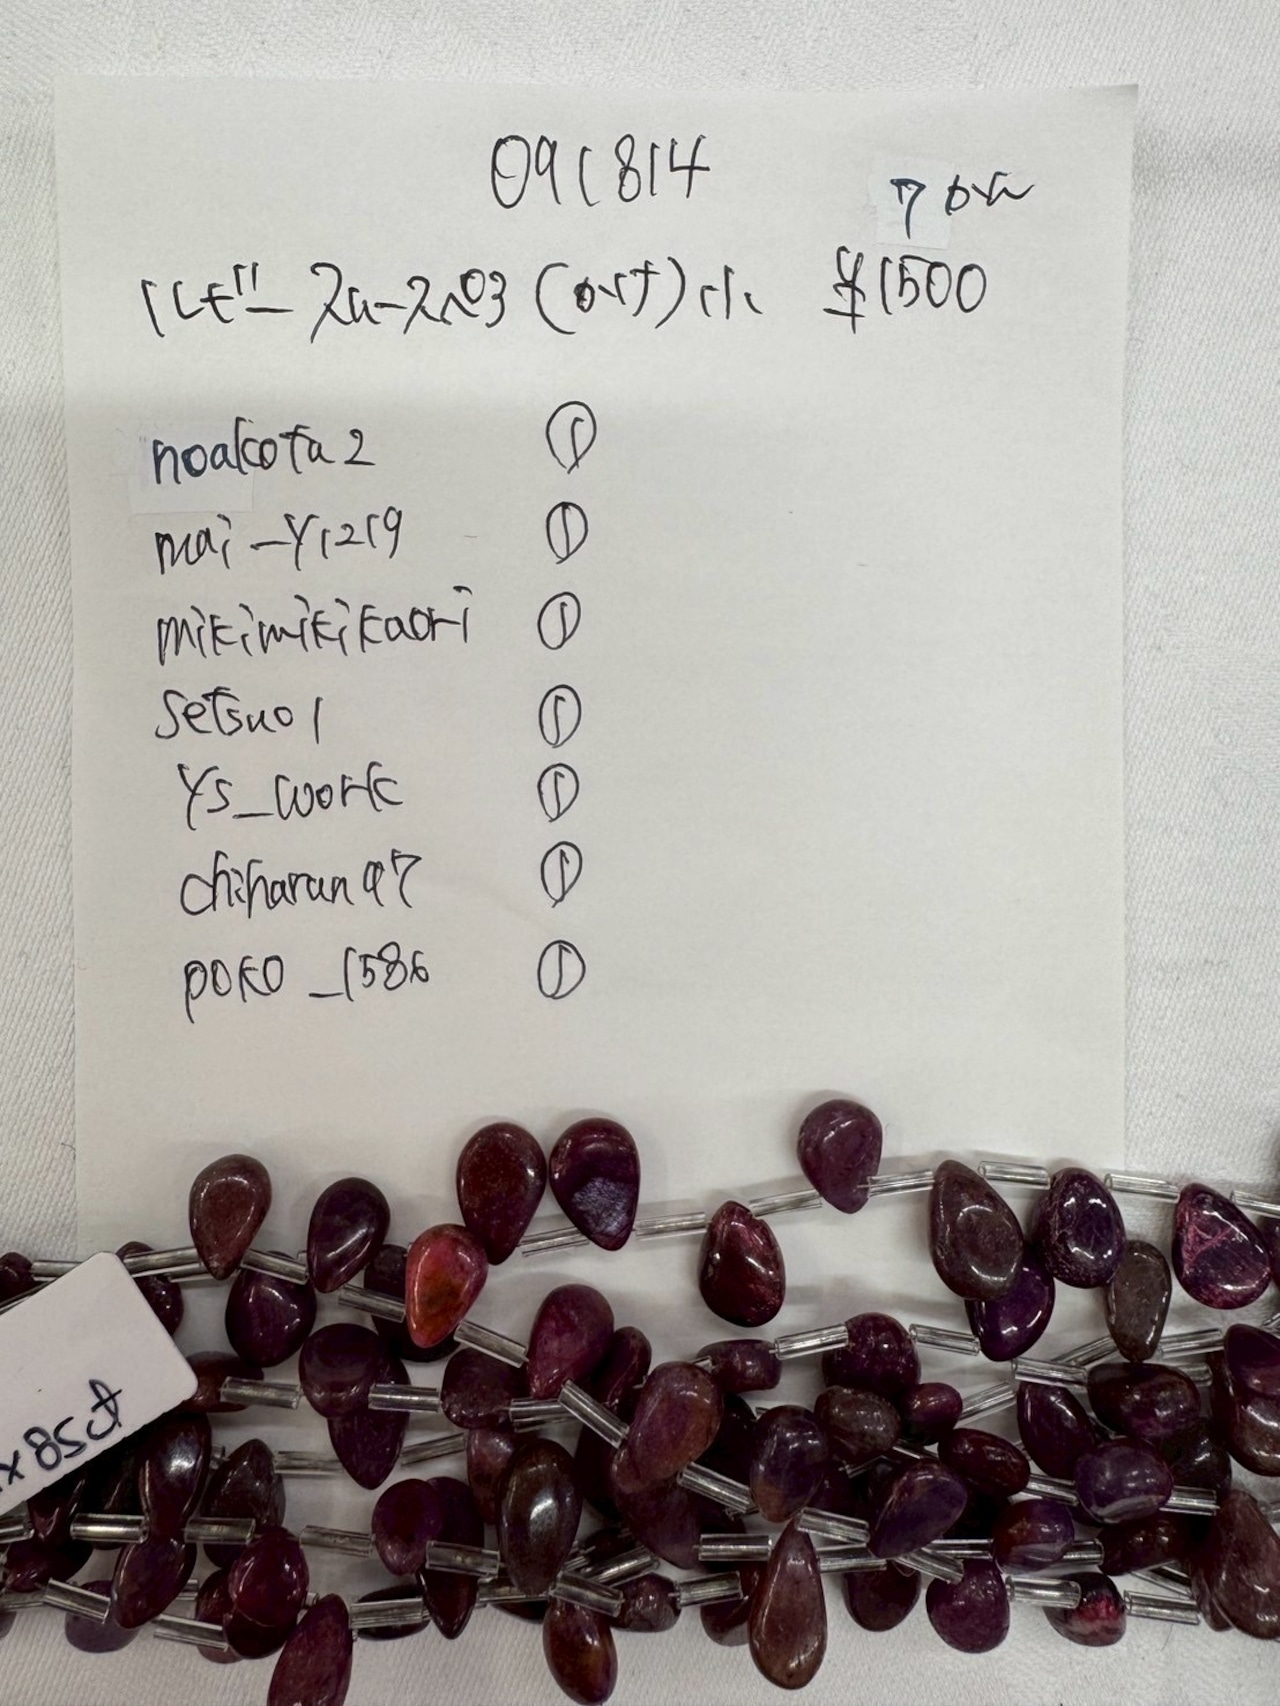 091814
7 かい
ルビー スムースペアー (かけ) 小 ¥1500
noakota2 ①
mai_y1219 ①
mikimikikaori ①
setsuo1 ①
ys_work ①
chiharun97 ①
poko_1586 ①